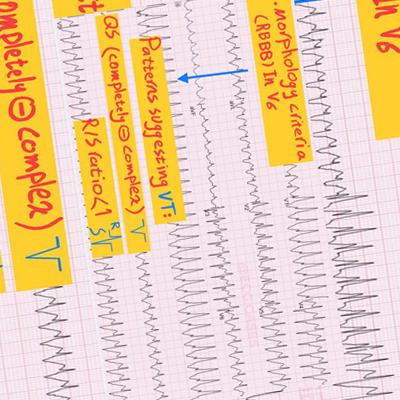 in V6
.morphology criteria
(RBBB) In V6
Patterns suggesting VT:
QS (completely ⊖ complex)
R/S ratio<1
R/S
ompletely ⊖ complex)